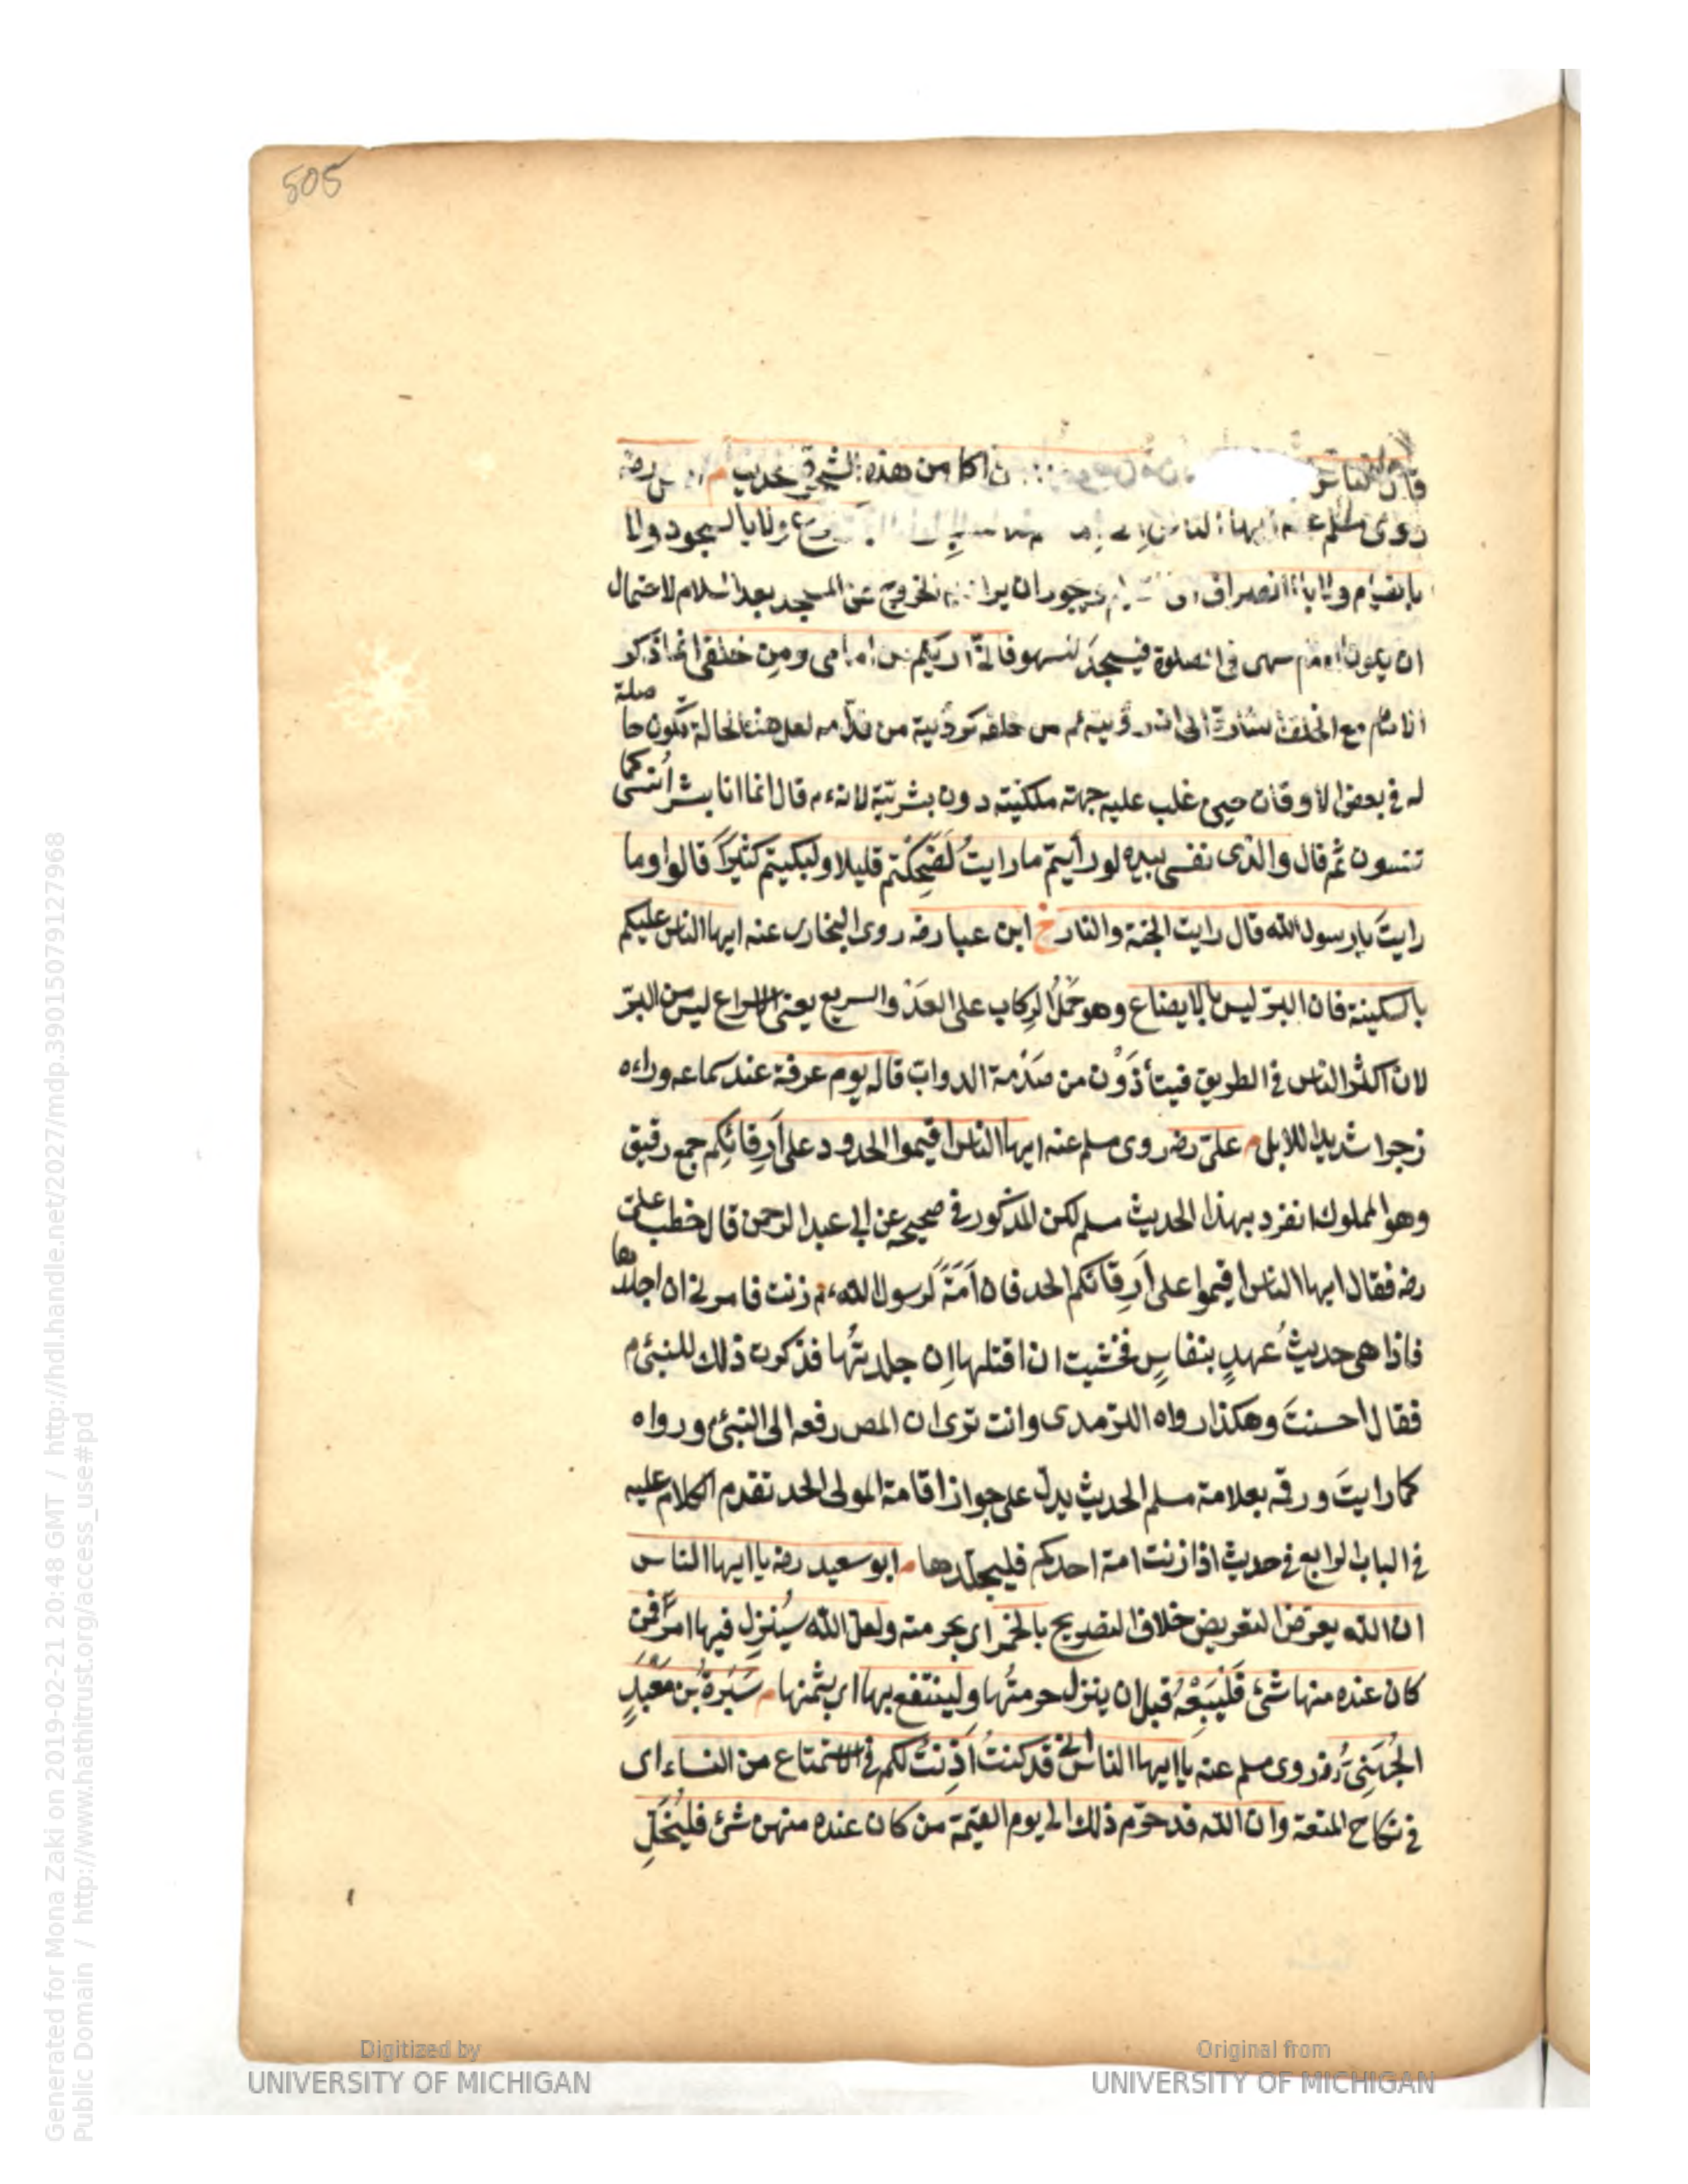 505
اكل من هذه الشجرة حديث م رضه
روى مسلم عنه ايها الناس ولا بالسجود ولا
بالقيام ولا بالانصراف ان يراد به الخروج عن المسجد بعد السلام لاحتمال
ان يكون الامام سهى فى الصلوة فيسجد للسهو فانى اريكم من امامى ومن خلفى انما ذكر
الامام مع الخلف اشارة الى ان رؤيته من خلفه كرؤيته من قدامه لعل هذه الحالة تكون حاصلة
له فى بعض الاوقات حين غلب عليه جهته ملكيته دون بشريته لانه م قال انما انا بشر انسى كما
تنسون ثم قال والذى نفسى بيده لو رأيتم ما رايتُ لَضَحِكْتم قليلا ولبكيتم كثيرًا قالوا وما
رايتَ يا رسول الله قال رايت الجنة والنار خ ابن عبا رضه روى البخارى عنه ايها الناس عليكم
بالسكينة فان البرّ ليس بالايضاع وهو حَمْلُ الركاب على العَدْو السريع يعنى الاسراع ليس من البرّ
لان اكثر الناس فى الطريق فيتأذَوْن من صَدْمة الدواب قاله يوم عرفة عند سماعه وراءه
زجرا شديدا للابل م علىّ رضه روى مسلم عنه ايها الناس اقيموا الحدود على اَرِقائكم جمع رقيق
وهو المملوك انفرد بهذا الحديث مسلم لكن المذكور فى صحيحه عن ابى عبد الرحمن قال خطب علىّ
رضه فقال ايها الناس اقيموا على اَرِقائكم الحد فان اَمَةً لرسول الله م زنت فامرنى ان اجلدها
فاذا هى حديثُ عهدٍ بنفاسٍ فخشيت ان اقتلها اِن جلدتُها فذكرت ذلك للنبىّ م
فقال احسنتَ وهكذا رواه الترمدى وانت ترى ان المص رفعه الى النبىّ ورواه
كما رايتَ ورقه بعلامة مسلم الحديث يدل على جواز اقامة المولى الحد تقدم الكلام عليه
فى الباب الرابع فى حديث اذا زنت امة احدكم فليجلدها م ابو سعيد رضه يا ايها الناس
ان الله يعرّض التعريض خلاف التصريح بالخمر اى بحرمته ولعل الله سيُنزِل فيها امرًا فمن
كان عنده منها شئ فَلْيَبِعْهُ قبل ان ينزل حرمتُها ولينتفع بها اى بثمنها م سَبْرةُ بن مَعْبَدٍ
الجُهَنِىّ رضه روى مسلم عنه يا ايها الناس انى قد كنتُ اَذِنتُ لكم فى الاستمتاع من النساء اى
فى نكاح المتعة وان الله قد حرّم ذلك الى يوم القيمة من كان عنده منهن شئ فليُخَلِّ
Digitized by
UNIVERSITY OF MICHIGAN
Original from
UNIVERSITY OF MICHIGAN
Generated for Mona Zaki on 2019-02-21 20:48 GMT / http://hdl.handle.net/2027/mdp.39015079127968
Public Domain / http://www.hathitrust.org/access_use#pd